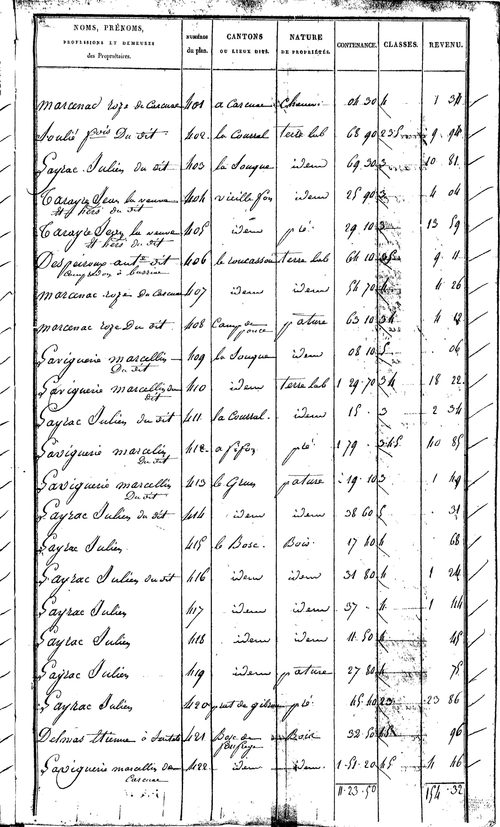 NOMS, PRÉNOMS, PROFESSIONS ET DEMEURES des Propriétaires. NUMÉROS du plan. CANTONS OU LIEUX DITS. NATURE DE PROPRIÉTÉS. CONTENANCE. CLASSES. REVENU.
marcenac roze de Carcuac 401 a Carcuac Chenev. 04 30 4 1 34
Soulié fcois Du dit 402 la Courral terre lab 68 90 235 9 94
Gayrac Julien du dit 403 la Souque idem 69 30 3 10 81
Tarayre Jean la veuve 404 vieille fon idem 25 90 3 4 04
et hers du dit
Tarayre Jean la veuve 405 idem pré 29 10 3 13 59
et hers du dit
Despeiroux ante dit 406 le roucassou terre lab 64 10 35 9 11
marcenac roze de Carcuac 407 idem idem 54 70 4 4 26
marcenac roze Du dit 408 Camp de pature 63 10 34 4 48
Gaviguerie marcellin 409 la Souque idem 08 10 5 06
Du dit
Gaviguerie marcellin du 410 idem terre lab 1 29 70 34 18 22
dit
Gayrac Julien du dit 411 la Courral idem 15 . 3 2 34
Gaviguerie marcelin 412 a fifon pré 1 79 . 345 40 85
Du dit
Gaviguerie marcellin 413 le Grun pature 19 10 3 1 49
Du dit
Gayrac Julien du dit 414 idem idem 38 60 5 31
Gayrac Julien 415 le Bosc Bois 17 40 4 68
Gayrac Julien du dit 416 idem idem 31 80 4 1 24
Gayrac Julien 417 idem idem 37 . 4 1 44
Gayrac Julien 418 idem idem 11 50 4 45
Gayrac Julien 419 idem pature 27 80 4 75
Gayrac Julien 420 prat de pré 45 40 23 23 86
Delmas Etienne à 421 Bosc de Bois 32 50 45 96
Gaviguerie marcellin de 422 idem idem 1 51 20 45 4 46
Carcuac
11 23 50 154 32